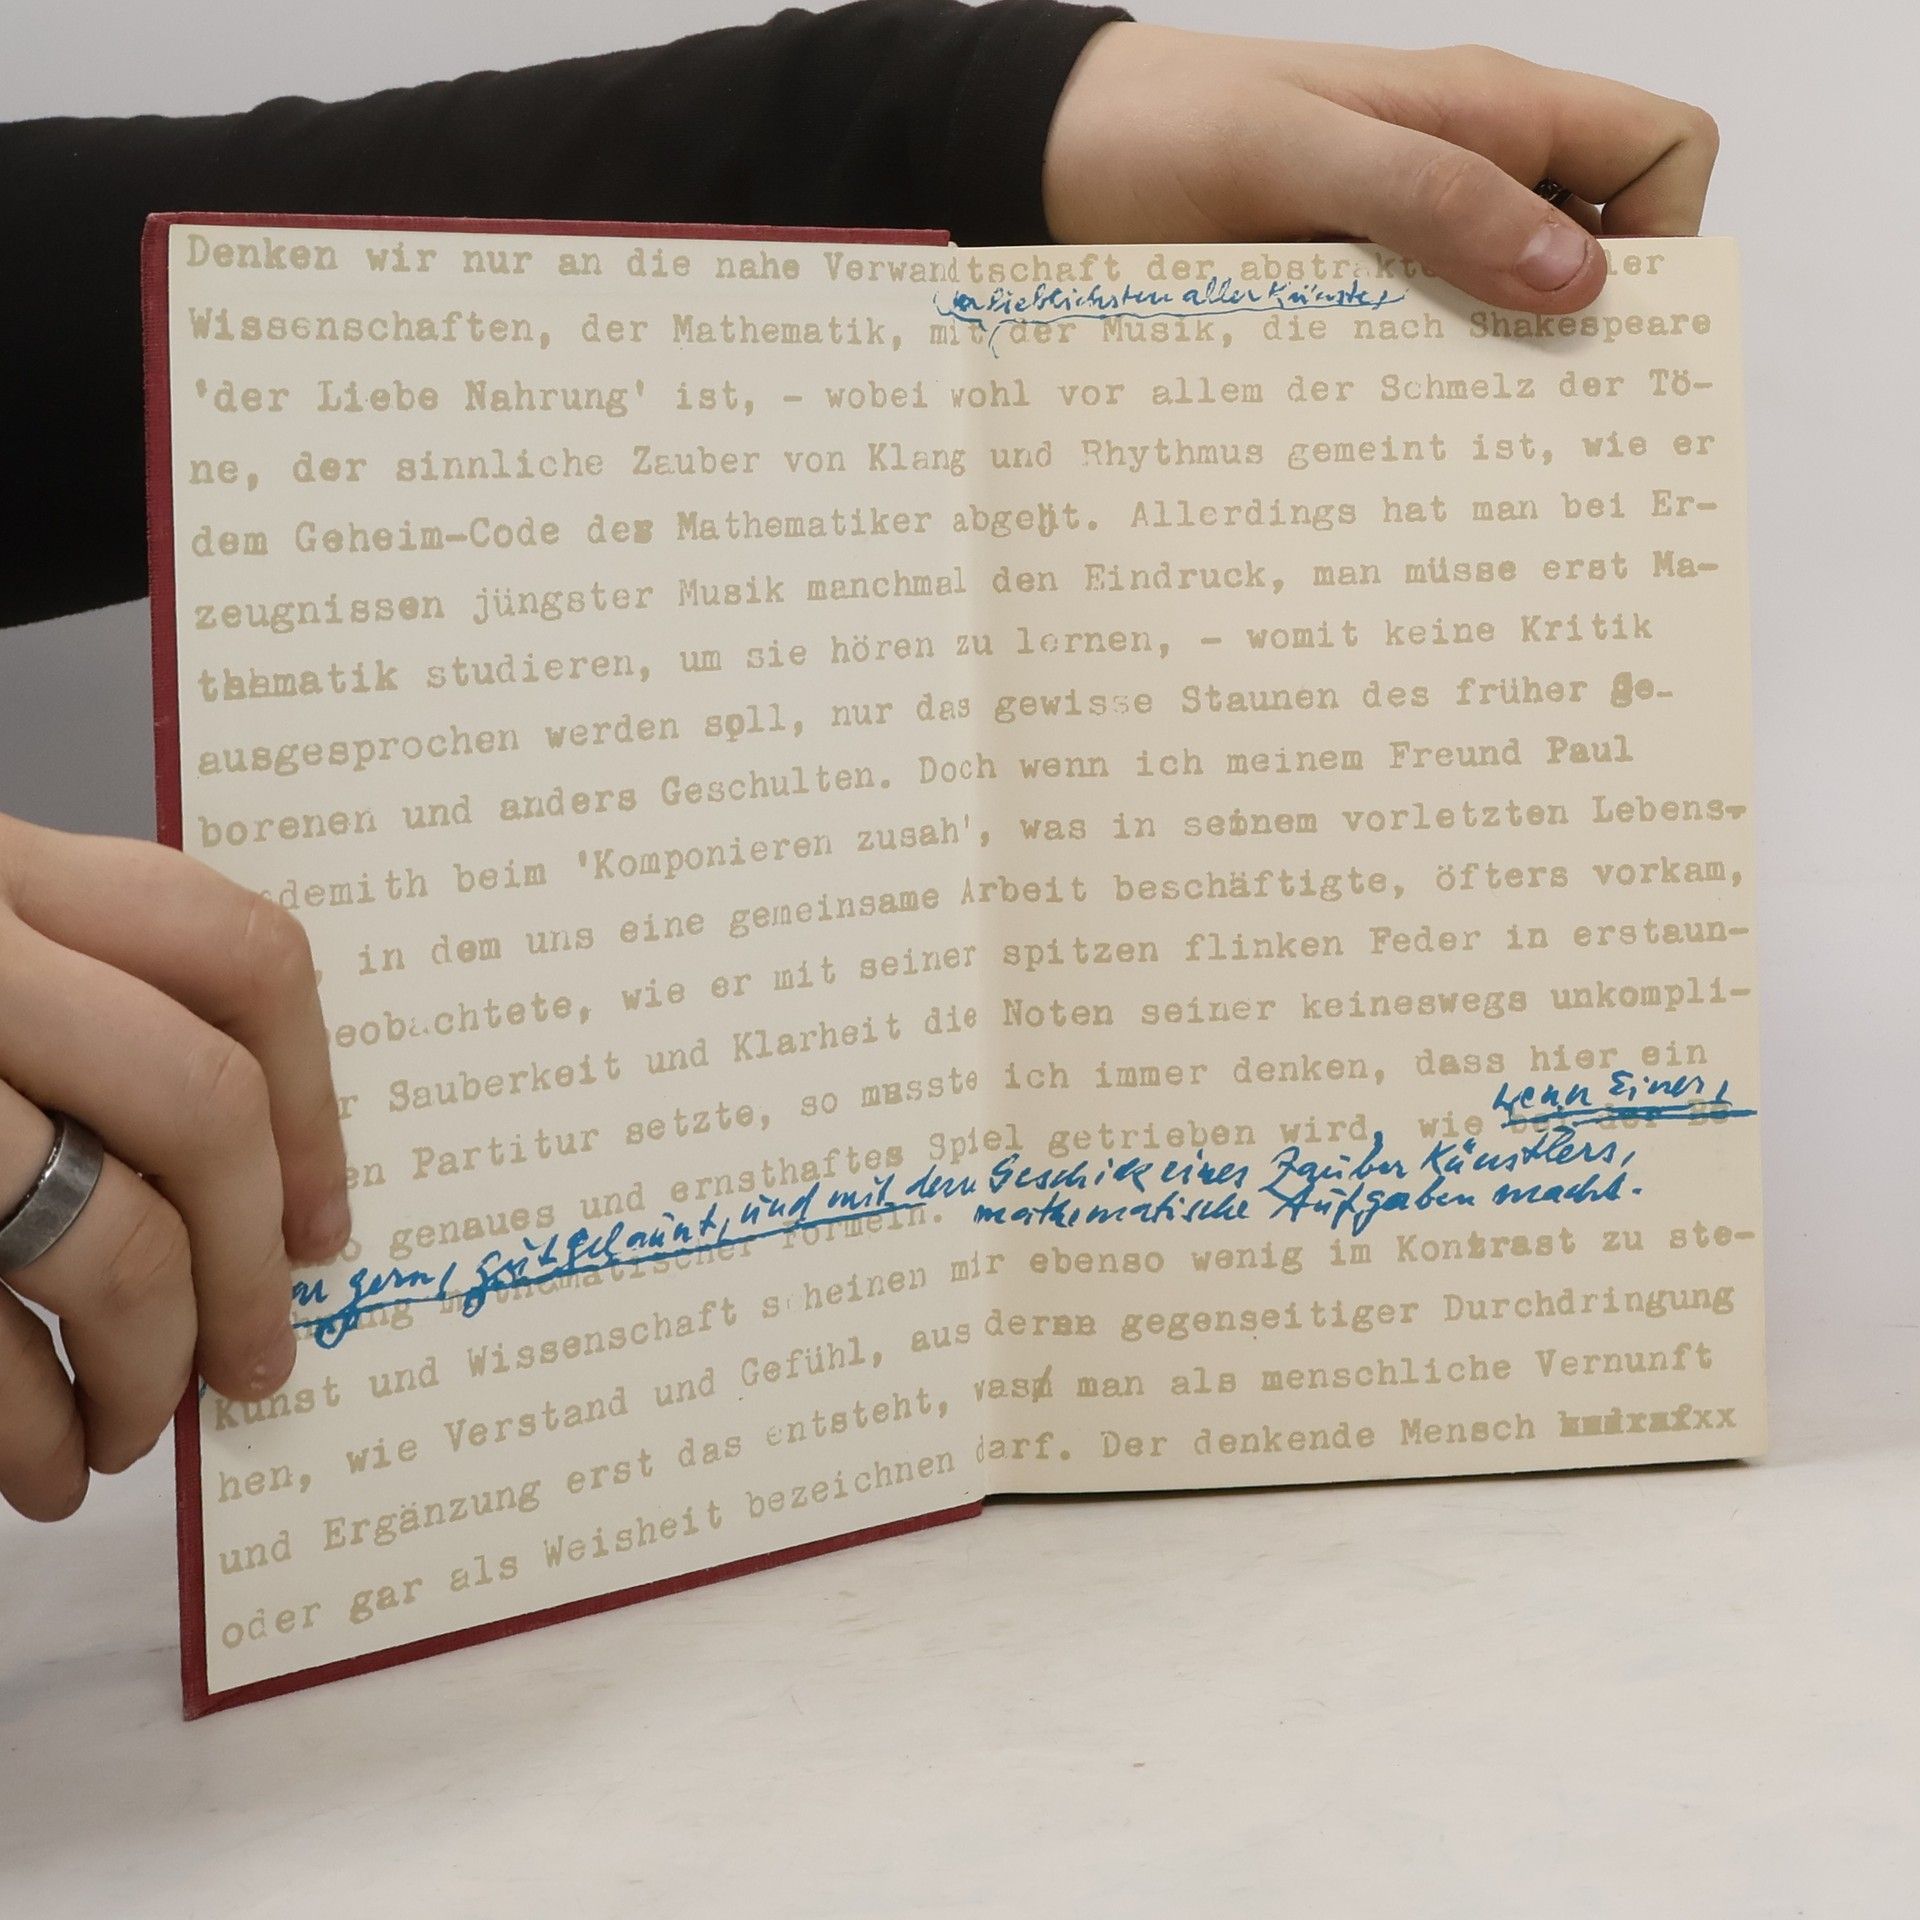 Denken wir nur an die nahe Verwandtschaft der
der lieblichsten aller Künste,
Wissenschaften, der Mathematik, mit der Musik, die nach Shakespeare
'der Liebe Nahrung' ist, - wobei wohl vor allem der Schmelz der Tö-
ne, der sinnliche Zauber von Klang und Rhythmus gemeint ist, wie er
dem Geheim-Code des Mathematiker abgeht. Allerdings hat man bei Er-
zeugnissen jüngster Musik manchmal den Eindruck, man müsse erst Ma-
thematik studieren, um sie hören zu lernen, - womit keine Kritik
ausgesprochen werden soll, nur das gewisse Staunen des früher ge-
borenen und anders Geschulten. Doch wenn ich meinem Freund Paul
demith beim 'Komponieren zusah', was in seinem vorletzten Lebens-
, in dem uns eine gemeinsame Arbeit beschäftigte, öfters vorkam,
beobachtete, wie er mit seiner spitzen flinken Feder in erstaun-
r Sauberkeit und Klarheit die Noten seiner keineswegs unkompli-
en Partitur setzte, so musste ich immer denken, dass hier ein
wenn Einer,
o genaues und ernsthaftes Spiel getrieben wird, wie bei der Be
gern, gutgelaunt, und mit dem Geschick eines Zauber Künstlers,
mathematische Aufgaben macht.
mathematischer Formeln.
Kunst und Wissenschaft scheinen mir ebenso wenig im Kontrast zu ste-
hen, wie Verstand und Gefühl, aus deren gegenseitiger Durchdringung
und Ergänzung erst das entsteht, was man als menschliche Vernunft
oder gar als Weisheit bezeichnen darf. Der denkende Mensch